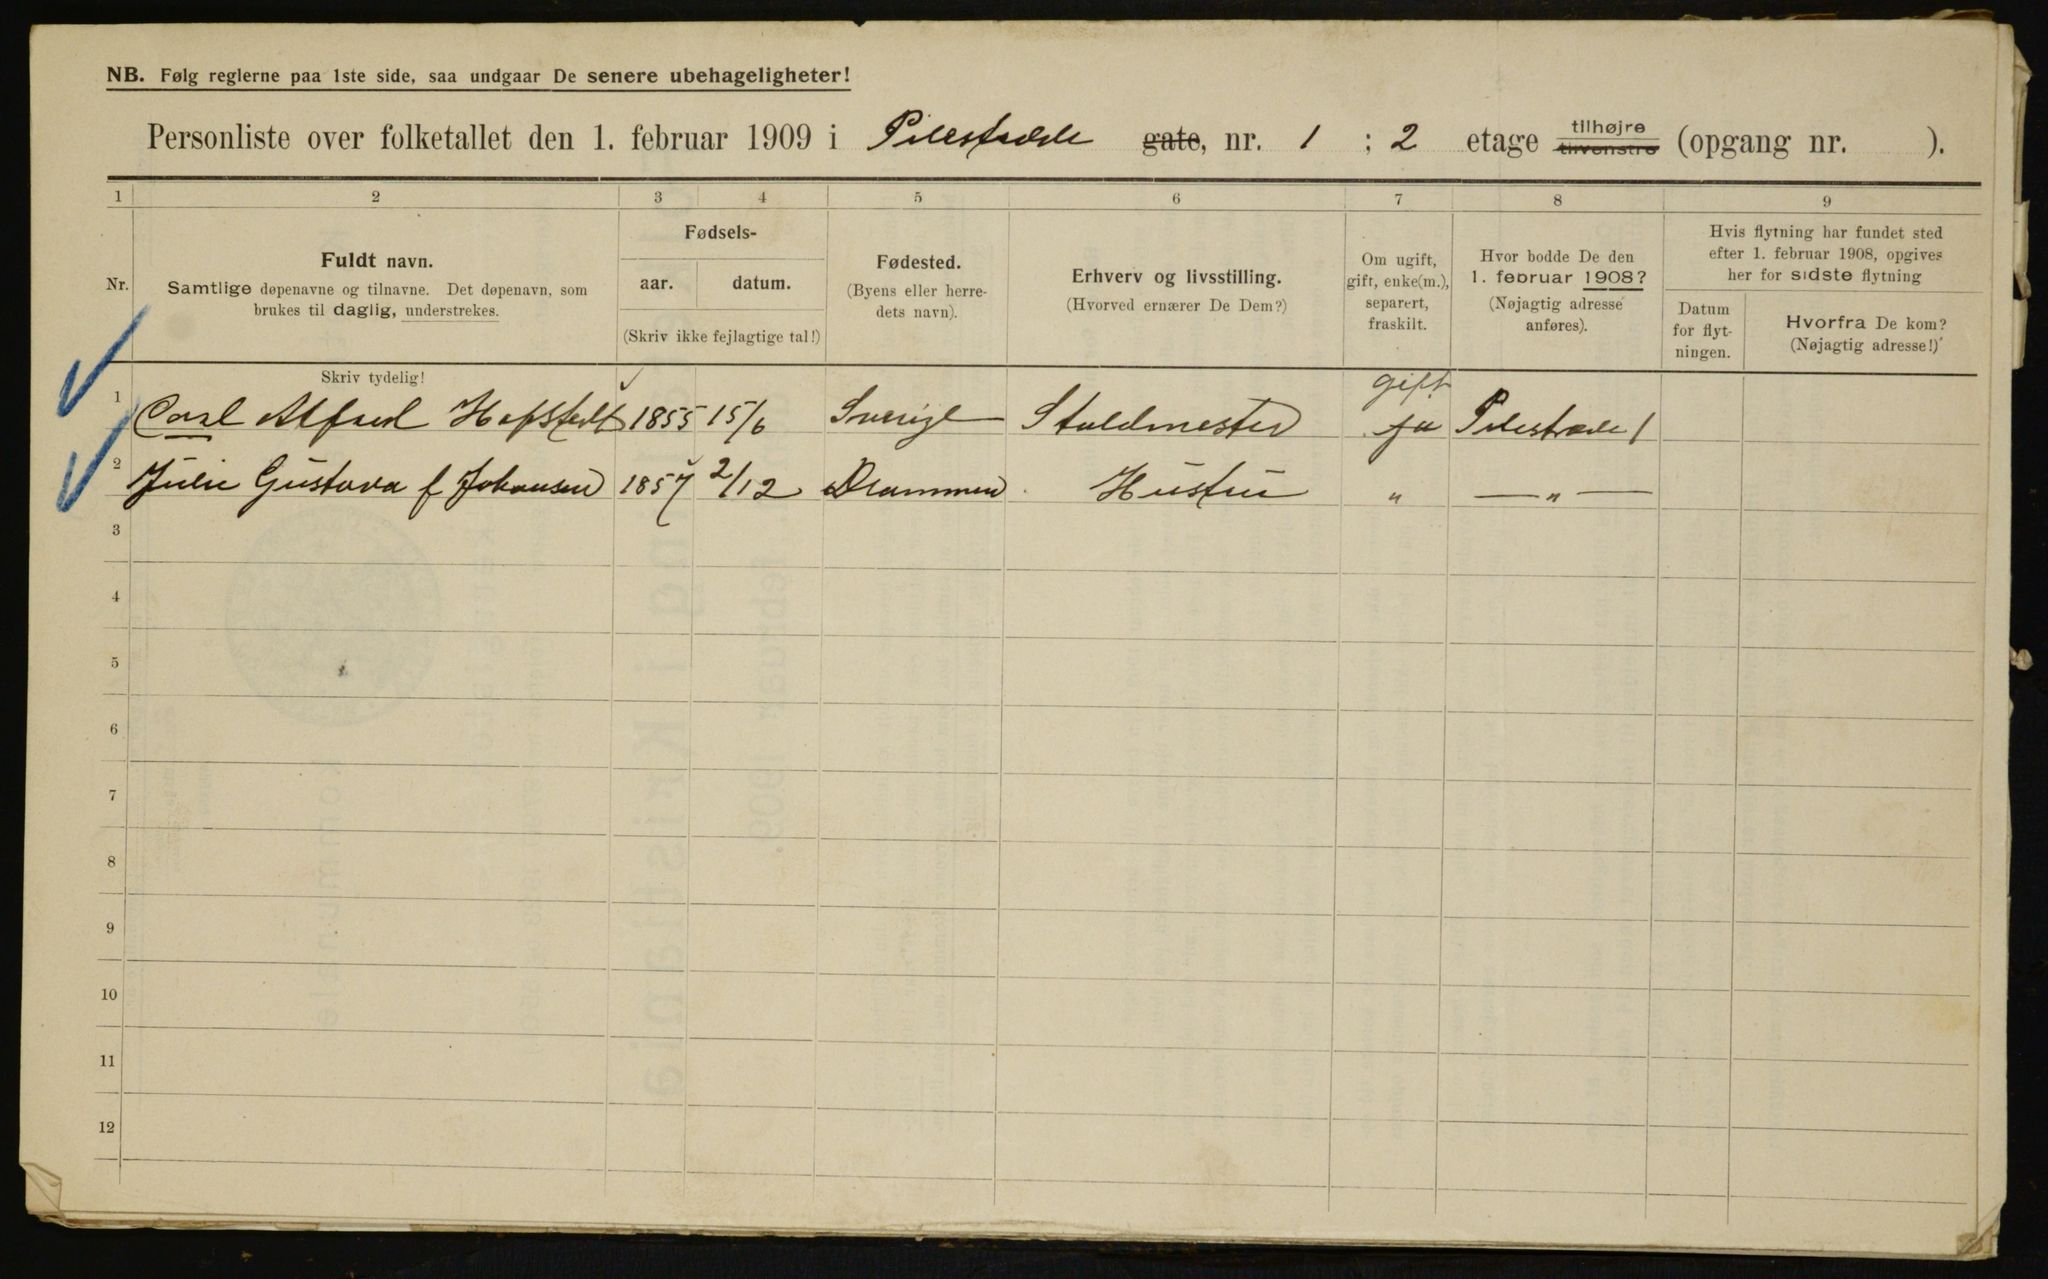 NB. Følg reglerne paa 1ste side, saa undgaar De senere ubehageligheter!
Personliste over folketallet den 1. februar 1909 i Pilestræde gate, nr. 1 ; 2 etage tilhøjre tilvenstre (opgang nr. ).
1 2 3 4 5 6 7 8 9
Nr.
Fuldt navn.
Samtlige døpenavne og tilnavne. Det døpenavn, som
brukes til daglig, understrekes.
Fødsels-
aar. datum.
(Skriv ikke fejlagtige tal!)
Fødested.
(Byens eller herre-
dets navn).
Erhverv og livsstilling.
(Hvorved ernærer De Dem?)
Om ugift,
gift, enke(m.),
separert,
fraskilt.
Hvor bodde De den
1. februar 1908?
(Nøjagtig adresse
anføres).
Hvis flytning har fundet sted
efter 1. februar 1908, opgives
her for sidste flytning
Datum
for flyt-
ningen.
Hvorfra De kom?
(Nøjagtig adresse!)
Skriv tydelig!
gift
1 Carl Alfred Hofstedt 1855 15/6 Sverige Staldmester ja Pilestræde 1
2 Julie Gustava f Johansen 1857 2/12 Drammen Hustru " — " —
3
4
5
6
7
8
9
10
11
12